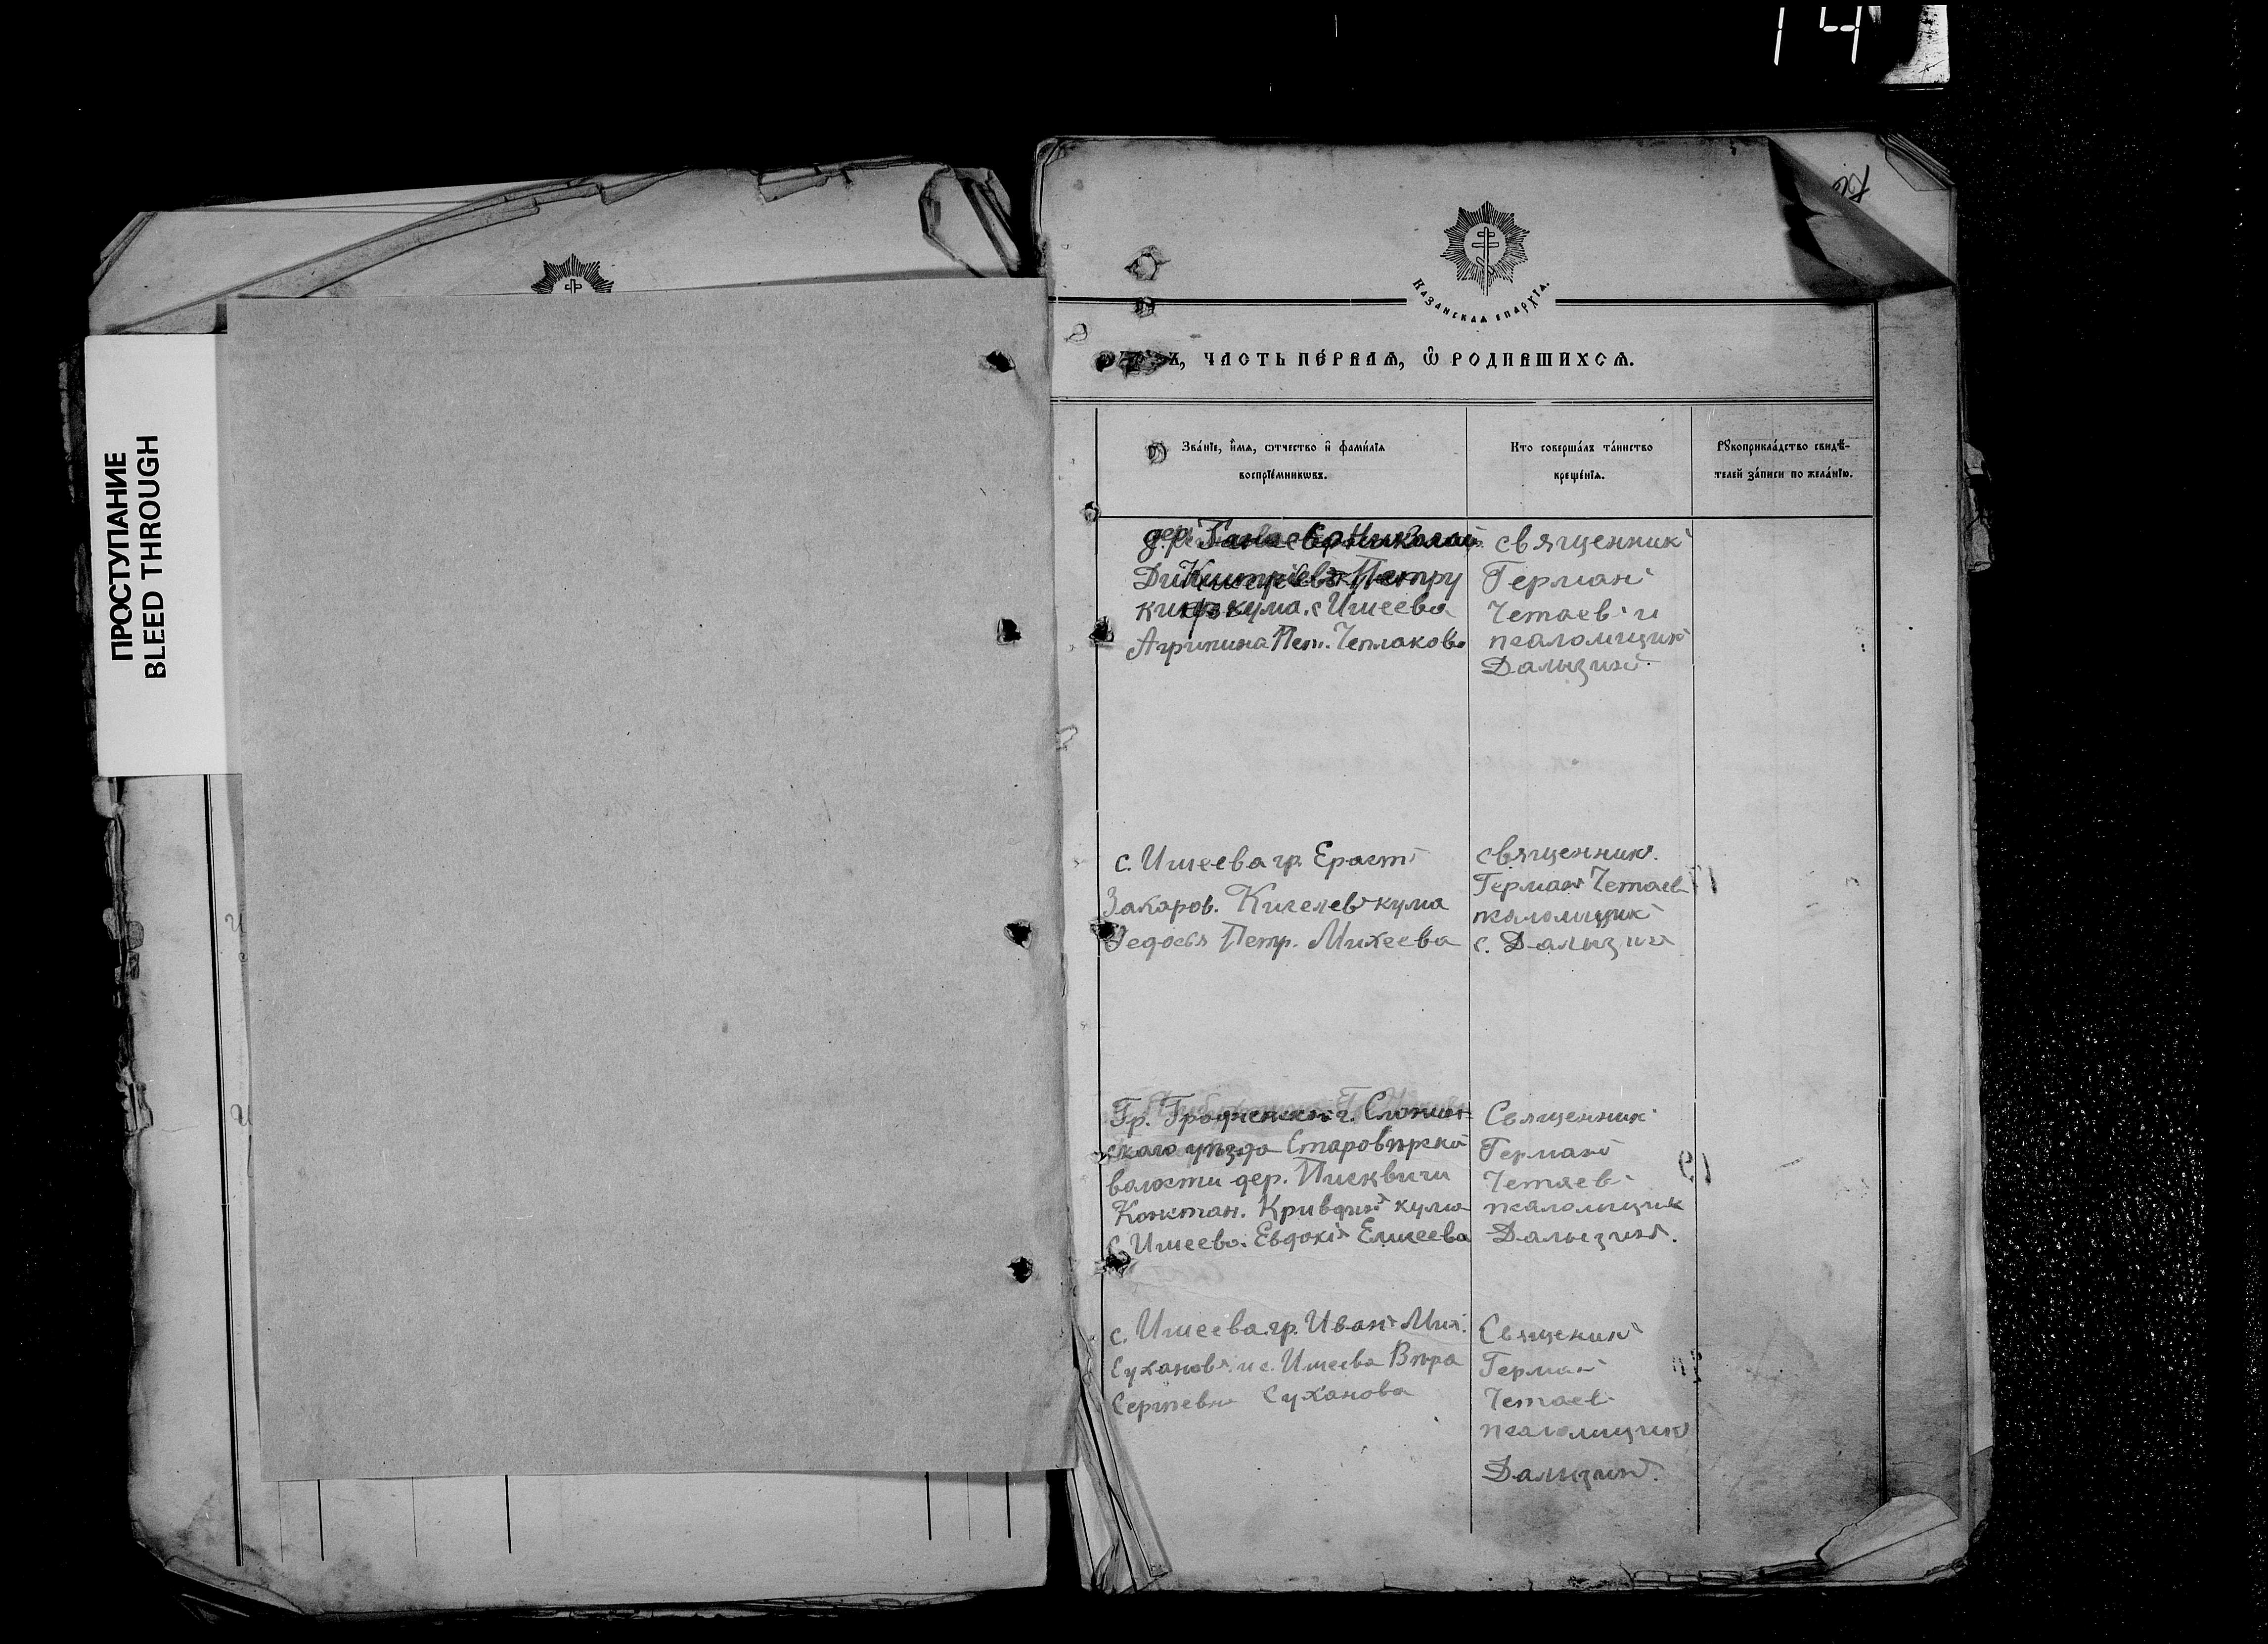 14
ПРОСТУПАНИЕ
BLEED THROUGH
Казанская епархїѧ.
ЧАСТЬ ПЕ́РВАѦ, Ѽ РОДИВШИХСѦ.
Зва́нїе, и҆́мѧ, ѻ҆́тчество и҆ фамѝлїѧ
воспрїе́мникѡвъ.
Кто соверша́лъ та́инство
креще́нїѧ.
Рꙋкоприкла́дство свидѣ́-
телей за́писи по жела́нїю.
дер. Николай
Петру
кинъ кума с Ишеева
Агрипина Пет. Чеплакова
священникъ
Германъ
Четаевъ и
псаломщикъ
Далызинъ.
с. Ишеева гр. Ерастъ
Захаров. Кигелевъ кума
Федосья Петр. Михеева
священникъ.
Германъ Четаевъ
псаломщикъ
с. Далызинъ
Гр. г. Слоним
скаго уѣзда Старовѣрской
волости дер.
Констан. кума
с Ишеево. Евдокія Елисеева
Священникъ
Германъ
Четаевъ
псаломщик
Далызинъ.
с. Ишеева гр. Иванъ Мих.
Сухановъ и с. Ишеева Вѣра
Сергіевна Суханова
Священикъ
Герман
Четаевъ
псаломщикъ
Далызинъ.